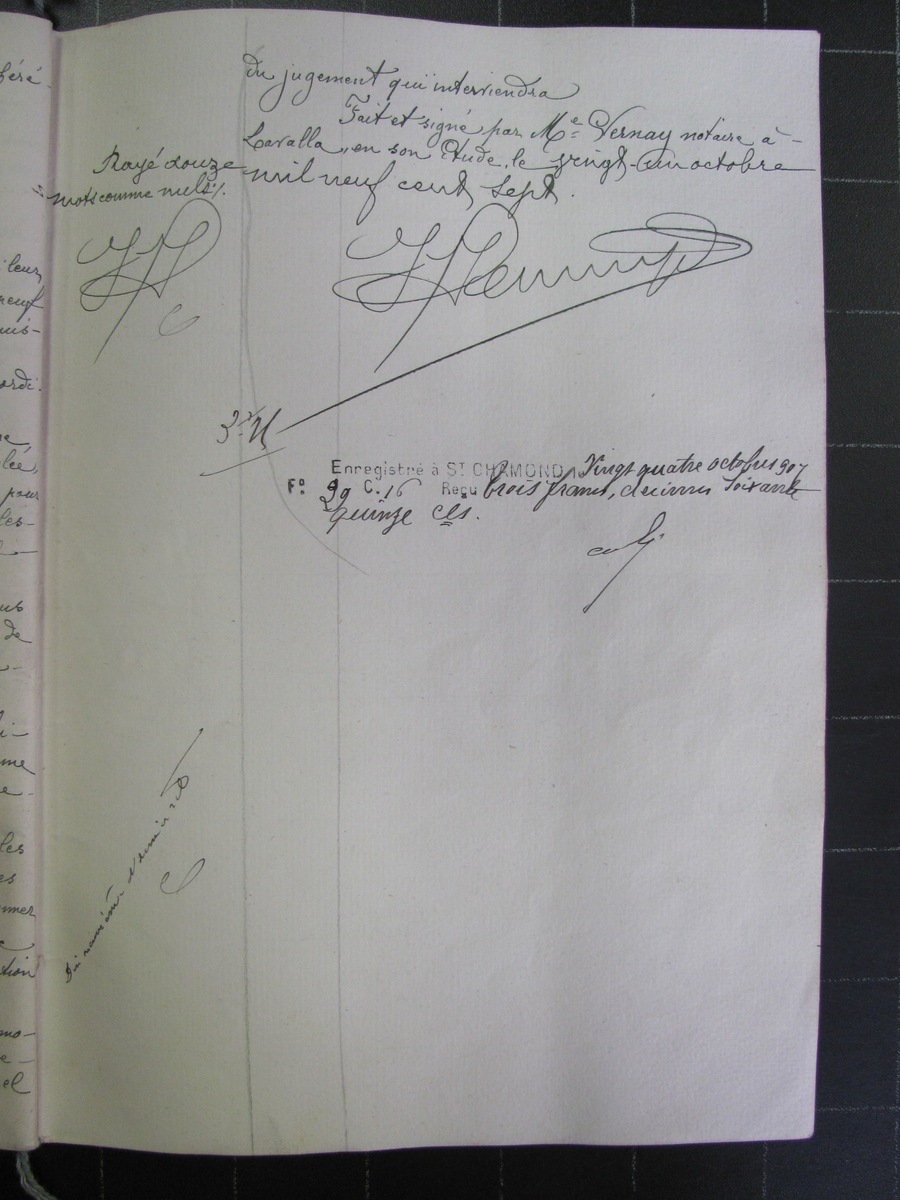 du jugement qui interviendra
Fait et signé par Me Vernay notaire à-
Lavalla, en son étude, le vingt-un octobre
mil neuf cent sept.
Rayé douze
mots comme nuls
Enregistré à ST CHAMOND, le Vingt quatre octobre 907
Fo 99 C. 16 Reçu trois francs, décimes soixante
quinze cts.
féré-
leur
neuf
pour
de
me
les
es
tion
mo-
e-
el